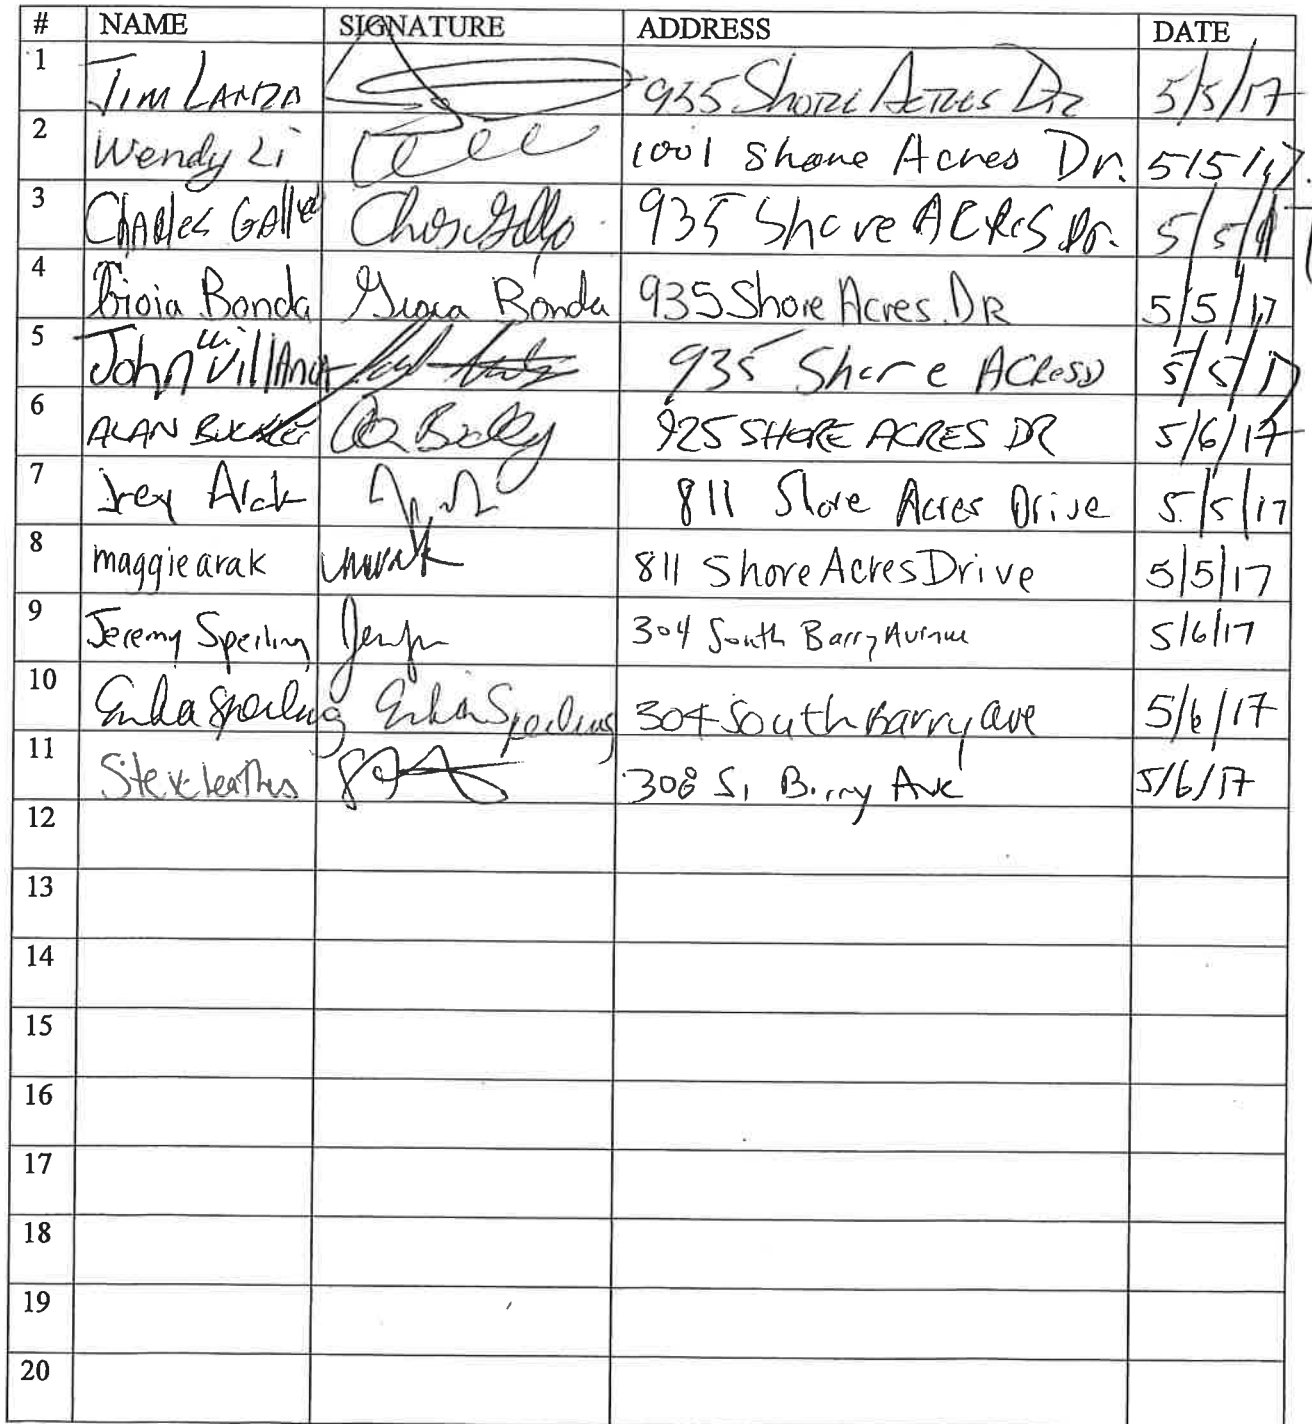 # NAME SIGNATURE ADDRESS DATE
1 Jim LANZA 935 Shore Acres Dr 5/5/17
2 Wendy Li 1001 Shore Acres Dr. 5/5/17.
3 Charles Gallo 935 Shore ACRES Dr. 5/5/17
4 Gioia Bonda Gioia Bonda 935 Shore Acres DR 5/5/17
5 John 935 Shore ACRESD 5/5/17
6 ALAN 925 SHORE ACRES DR 5/6/17
7 Arak 811 Shore Acres Drive 5/5/17
8 maggie arak marak 811 Shore Acres Drive 5/5/17
9 Jeremy Sperling 304 South Barry Avenue 5/6/17
10 Erika Sperling Erika Sperling 304 South Barry Ave 5/6/17
11 Steve 308 S. Barry Ave 5/6/17
12
13
14
15
16
17
18
19
20